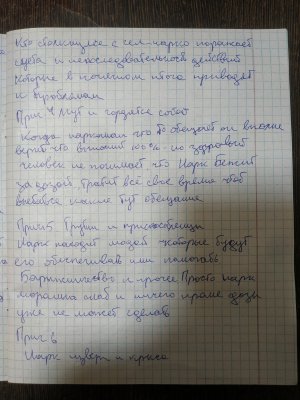 Кто столкнулся с чел-нарко поражает
суета и непоследовательность действий
которые в конечном итоге приводят
к проблемам
Приз 4 Мут и гордится собой
Когда наркоман что то обещает он вполне
верит что выполнит 100% - но здоровый
человек не понимает что Нарк бежит
за дозой тратит всё свое время чтоб
какие тут обещания
Приз 5 Трутни и приспособленцы
Нарк находит людей которые будут
его обеспечивать или помогать
и прочее Просто Нарк
морально слаб и ничего кроме дозы
уже не может сделать
Приз 6
Нарк изверг и крыса